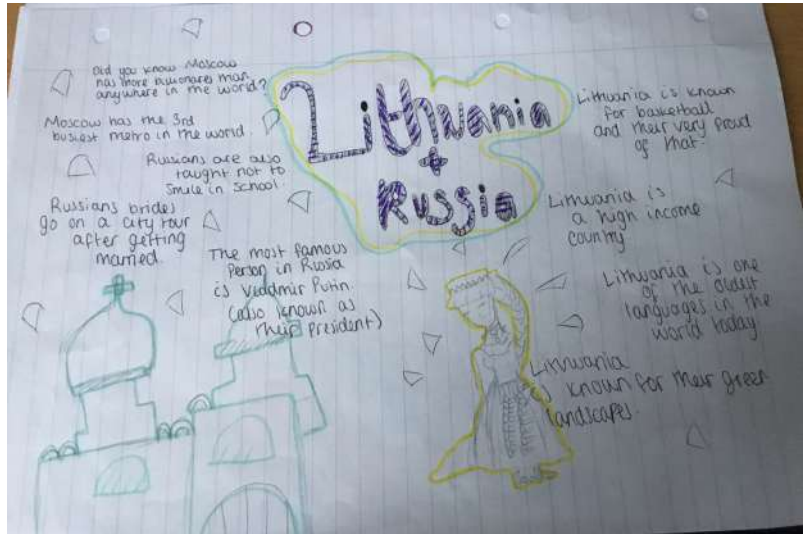 Lithuania
+
Russia
Did you know Moscow
has more billionares than
anywhere in the world?
Moscow has the 3rd
busiest metro in the world.
Russians are also
taught not to
smile in school.
Russians brides
go on a city tour
after getting
married.
The most famous
Person in Russia
is Vladmir Putin.
(also known as
their president)
Lithuania is known
for basketball
and their very proud
of that.
Lithuania is
a high income
country
Lithuania is one
of the oldest
languages in the
world today
Lithuania
is known for their green
landscapes.